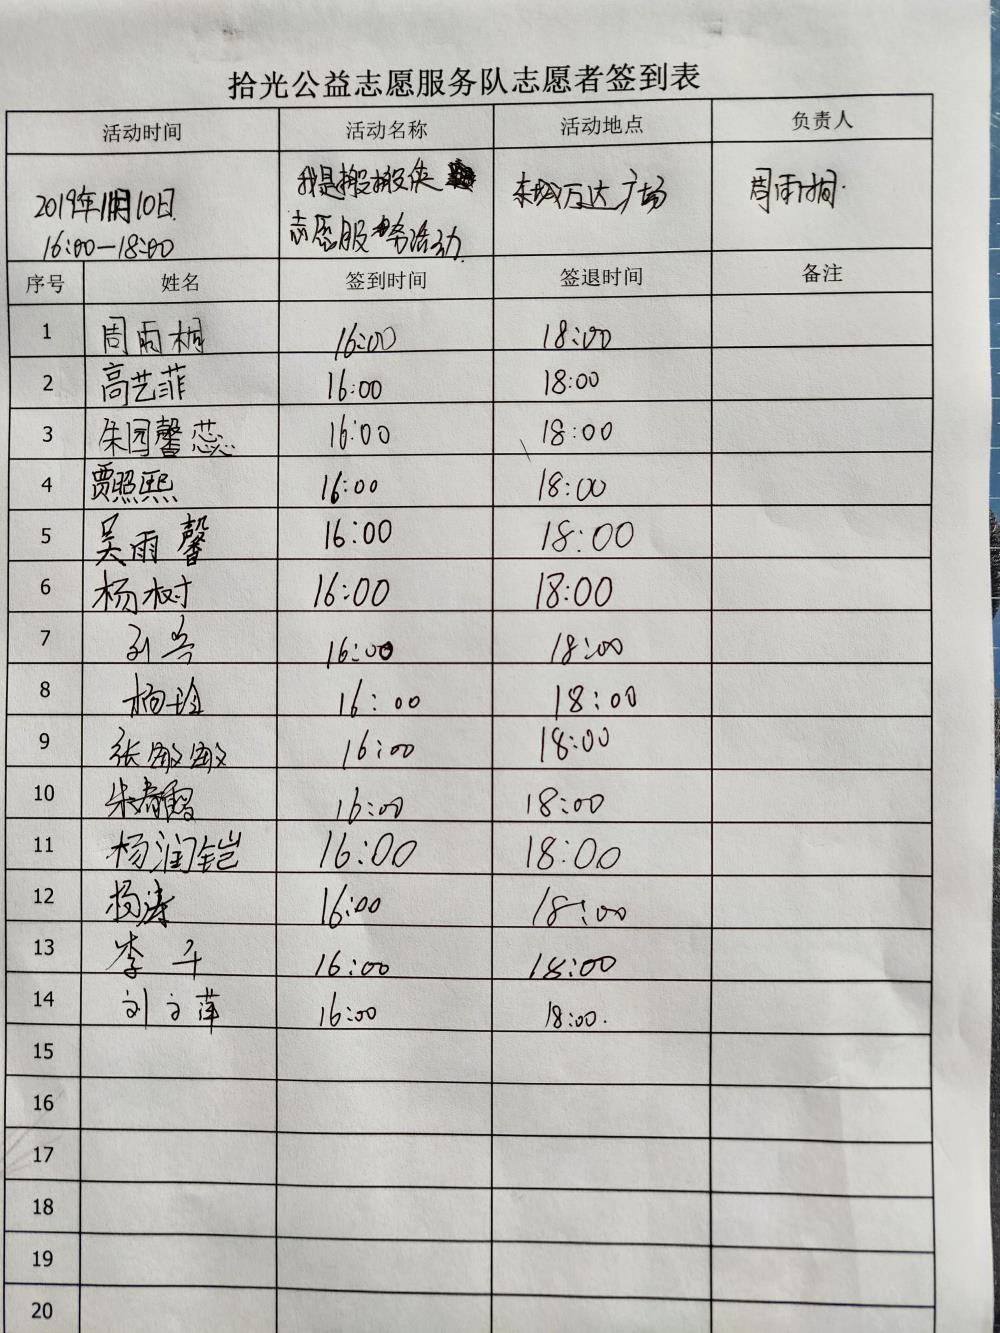 拾光公益志愿服务队志愿者签到表
活动时间 活动名称 活动地点 负责人
2019年11月10日 我是搬搬侠 东城万达广场 周雨桐
16:00—18:00 志愿服务活动
序号 姓名 签到时间 签退时间 备注
1 周雨桐 16:00 18:00
2 高艺菲 16:00 18:00
3 朱园馨蕊 16:00 18:00
4 贾照熙 16:00 18:00
5 吴雨馨 16:00 18:00
6 杨树 16:00 18:00
7 16:00 18:00
8 杨玲 16:00 18:00
9 张敏敏 16:00 18:00
10 朱春霞 16:00 18:00
11 杨润铠 16:00 18:00
12 杨涛 16:00 18:00
13 李 16:00 18:00
14 刘文萍 16:00 18:00.
15
16
17
18
19
20